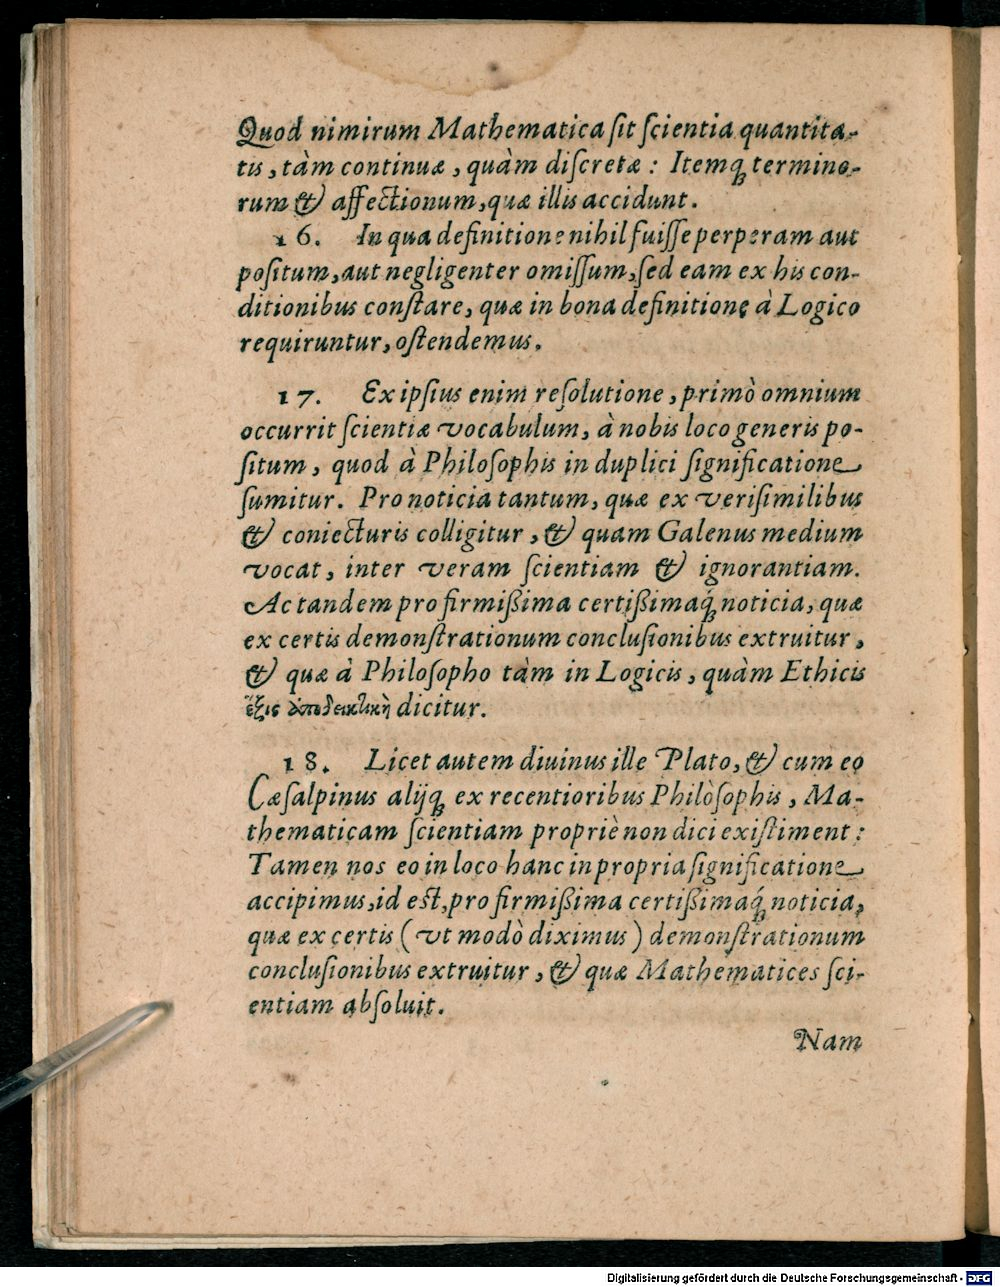 Quod nimirum Mathematica ſit ſcientia quantita-
tis, tàm continuæ, quàm diſcretæ: Itemq́ꝫ termino-
rum & affectionum, quæ illis accidunt.
16. In qua definitione nihil fuiſſe perperam aut
poſitum, aut negligenter omiſſum, ſed eam ex his con-
ditionibus conſtare, quæ in bona definitione à Logico
requiruntur, oſtendemus.
17. Ex ipſius enim reſolutione, primò omnium
occurrit ſcientiæ vocabulum, à nobis loco generis po-
ſitum, quod à Philoſophis in duplici ſignificatione
ſumitur. Pro noticia tantum, quæ ex veriſimilibus
& coniecturis colligitur, & quam Galenus medium
vocat, inter veram ſcientiam & ignorantiam.
Ac tandem pro firmißima certißimaq́ꝫ noticia, quæ
ex certis demonſtrationum concluſionibus extruitur,
& quæ à Philoſopho tàm in Logicis, quàm Ethicis
ἕξις ἀποδεικτικὴ dicitur.
18. Licet autem diuinus ille Plato, & cum eo
Cæſalpinus alijqꝫ ex recentioribus Philòſophis, Ma-
thematicam ſcientiam propriè non dici exiſtiment:
Tamen nos eo in loco hanc in propria ſignificatione
accipimus, id eſt, pro firmißima certißimaq́ꝫ noticia,
quæ ex certis (vt modò diximus) demonſtrationum
concluſionibus extruitur, & quæ Mathematices ſci-
entiam abſoluit.
Nam
Digitalisierung gefördert durch die Deutsche Forschungsgemeinschaft - DFG